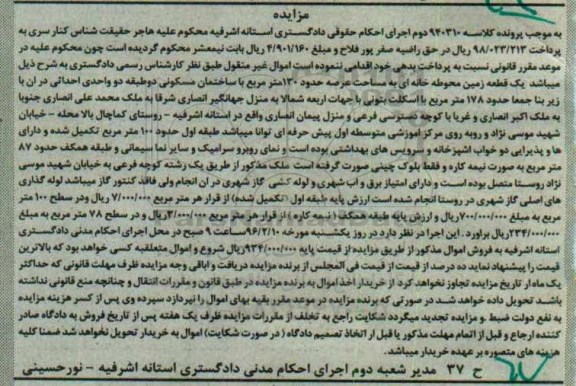 مزایده
به موجب پرونده کلاسه ۹۴۰۳۱۰ دوم اجرای احکام حقوقی دادگستری آستانه اشرفیه محکوم علیه هاجر حقیقت شناس کنار سری به
پرداخت ۹۸/۰۲۳/۲۱۳ ریال در حق راضیه صفر پور فلاح و مبلغ ۴/۹۰۱/۱۶۰ ریال بابت نیمعشر محکوم گردیده است چون محکوم علیه در
موعد مقرر قانونی نسبت به پرداخت بدهی خود اقدامی ننموده است اموال غیر منقول طبق نظر کارشناس رسمی دادگستری به شرح ذیل
میباشد یک قطعه زمین محوطه خانه ای به مساحت عرصه حدود ۱۳۰متر مربع با ساختمان مسکونی دوطبقه دو واحدی احداثی در آن با
زیر بنا جمعا حدود ۱۷۸ متر مربع با اسکلت بتونی با جهات اربعه شمالا به منزل جهانگیر انصاری شرقا به ملک محمد علی انصاری جنوبا
به ملک اکبر انصاری و غربا با کوچه دسترسی فرعی و منزل پیمان انصاری واقع در آستانه اشرفیه – روستای کماچال بالا محله – خیابان
شهید موسی نژاد و روبه روی مرکز آموزشی متوسطه اول پیش حرفه ای توانا میباشد طبقه اول حدود ۱۰۰ متر مربع تکمیل شده و دارای
ها و پذیرایی دو خواب آشپزخانه و سرویس های بهداشتی بوده است و نمای روبرو سرامیک و سایر نما سیمانی و طبقه همکف حدود ۸۷
متر مربع به صورت نیمه کاره و فقط بلوک چینی صورت گرفته است ملک مذکور از طریق یک رشته کوچه فرعی به خیابان شهید موسی
نژاد روستا متصل بوده است و دارای امتیاز برق و آب شهری و لوله کشی گاز شهری در آن انجام ولی فاقد کنتور گاز میباشد لوله گذاری
های اصلی گاز شهری در روستا انجام شده است ارزش پایه طبقه اول (تکمیل شده) از قرار هر متر مربع ۷/۰۰۰/۰۰۰ ریال ودر سطح ۱۰۰ متر
مربع به مبلغ ۷۰۰/۰۰۰/۰۰۰ریال و ارزش پایه طبقه همکف (نیمه کاره) از قرار هر متر مربع ۳/۰۰۰/۰۰۰ریال و در سطح ۷۸ متر مربع به مبلغ
۲۳۴/۰۰۰/۰۰۰ ریال براورد. این اجرا در نظر دارد در روز یکشنبه مورخه ۹۶/۲/۱۰ساعت ۹ صبح در محل اجرای احکام مدنی دادگستری
آستانه اشرفیه به فروش اموال مذکور از طریق مزایده از قیمت پایه ۹۳۴/۰۰۰/۰۰۰ریال شروع و اموال متعلقبه کسی خواهد بود که بالاترین
قیمت را پیشنهاد نماید ده درصد از قیمت فی المجلس از برنده مزایده دریافت و اباقی وجه مزایده ظرف مهلت قانونی که حداکثر
یک ماه از تاریخ مزایده تجاوز نخواهد کرد از خریدار اخذ اموال به برنده مزایده در طبق قانون و مقررات انتقال و چنانچه منع قانونی نداشته
باشد تحویل داده خواهد شد در صورتی که برنده مزایده در موعد مقرر بقیه بهای اموال را نپردازد سپرده وی پس از کسر هزینه مزایده
به نفع دولت ضبط و مزایده تجدید میگردد شکایت راجع به تخلف از مقررات مزایده ظرف یک هفته پس از تاریخ فروش به دادگاه صادر
کننده ارجاع و قبل از اتمام مهلت مذکور یا قبل از اتخاذ تصمیم دادگاه (در صورت شکایت) اموال به خریدار تحویل نخواهد شد ضمنا کلیه
هزینه های متصوره بر عهده خریدار میباشد.
ح ۳۷ مدیر شعبه دوم اجرای احکام مدنی دادگستری آستانه اشرفیه – نورحسینی